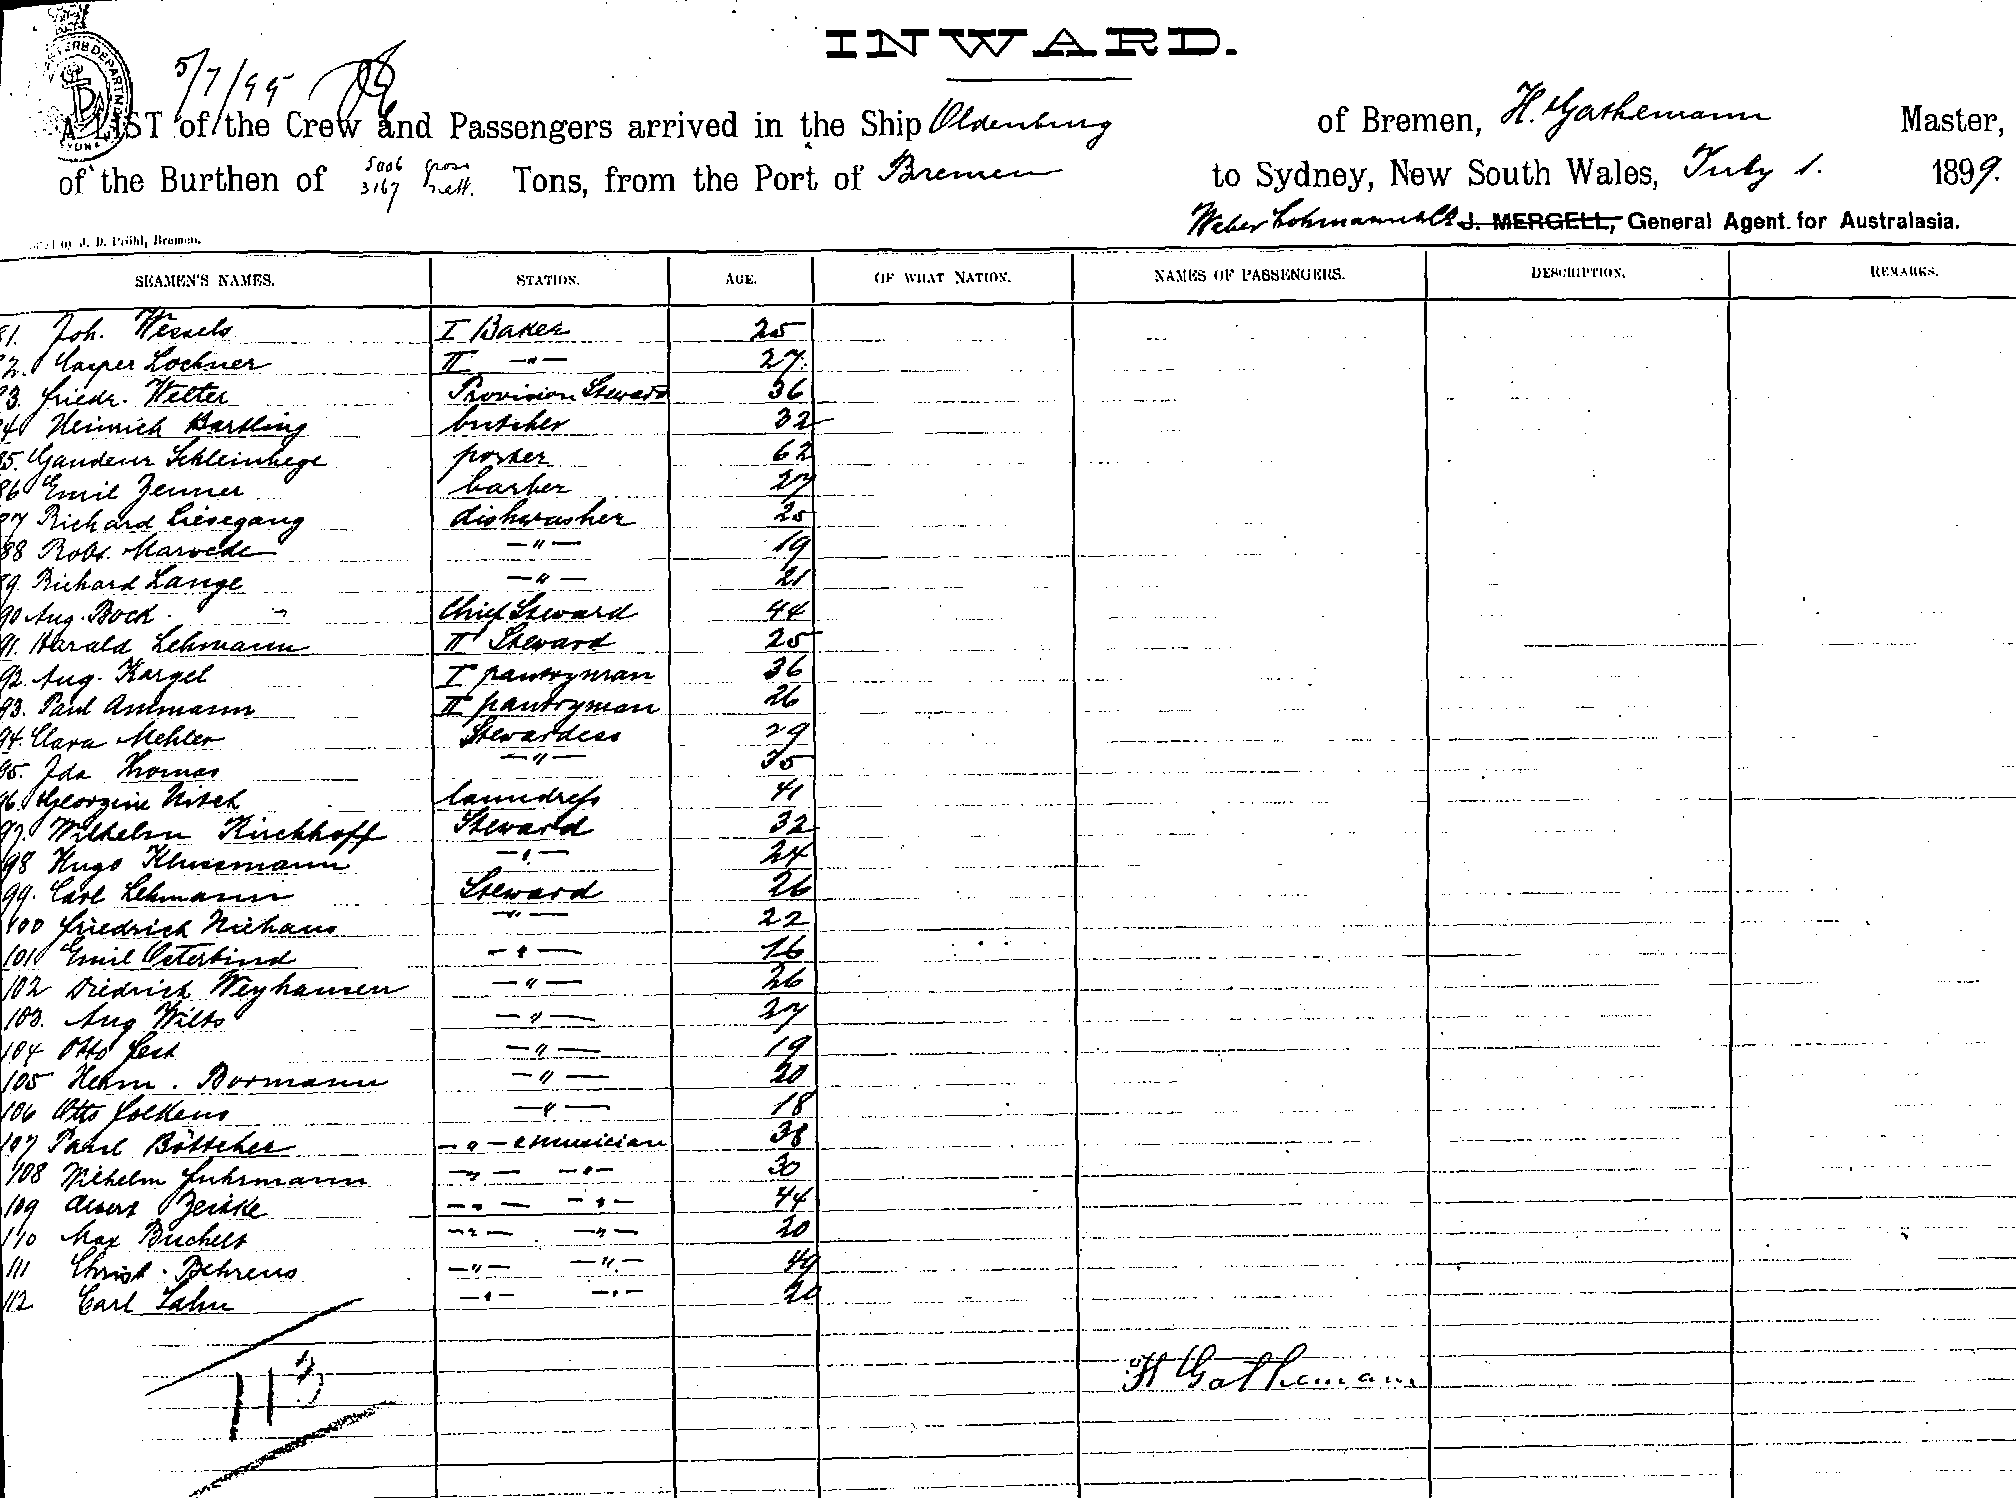 INWARD.
5/7/99
A LIST of the Crew and Passengers arrived in the Ship Oldenburg of Bremen, H. Gathemann Master,
of the Burthen of 5006 gross 3167 nett. Tons, from the Port of Bremen to Sydney, New South Wales, July 1. 1899.
Weber Lohmann & Co J. MERGELL, General Agent for Australasia.
by J. D. Pröhl, Bremen.
SEAMEN'S NAMES. STATION. AGE. OF WHAT NATION. NAMES OF PASSENGERS. DESCRIPTION. REMARKS.
81. Joh. Wessels I Baker 25
82. Casper Lochner II —"— 27.
83. Friedr. Welter Provision Steward 36
84 Heinrich Hartling butcher 32
85. Schleinhege porter 62
86 Emil Zenner barber 27
87 Richard Liesegang dishwasher 25
88 Robt. Marwede —"— 19
89. Richard Lange —"— 21
90 Aug. Bock Chief Steward 44
91. Harald Lehmann II Steward 25
92. Aug. Kargel I pantryman 36
93. Paul Ammann II pantryman 26
94. Clara Mehler Stewardess 29
95. Ida Thomas —"— 35
96. Georgine Nitsch laundress 41
97. Wilhelm Kirchhoff Steward 32
98 Hugo Klussmann —"— 24
99. Carl Lehmann Steward 26
100 Friedrich Niehaus —"— 22
101 Emil Osterbind —"— 16
102 Diedrich Weyhausen —"— 26
103. Aug Wilts —"— 27
104 Otto —"— 19
105 Herm. Bormann —"— 20
106 Otto Folkens —"— 18
107 Paul Böttcher —"— & musician 38
108 Wilhelm Fuhrmann —"— —"— 30
109 Albert Zeiske —"— —"— 44
110 Max Buchelt —"— —"— 20
111 Christ. Behrens —"— —"— 49
112 Carl Lahn —"— —"— 20
113
H Gathemann